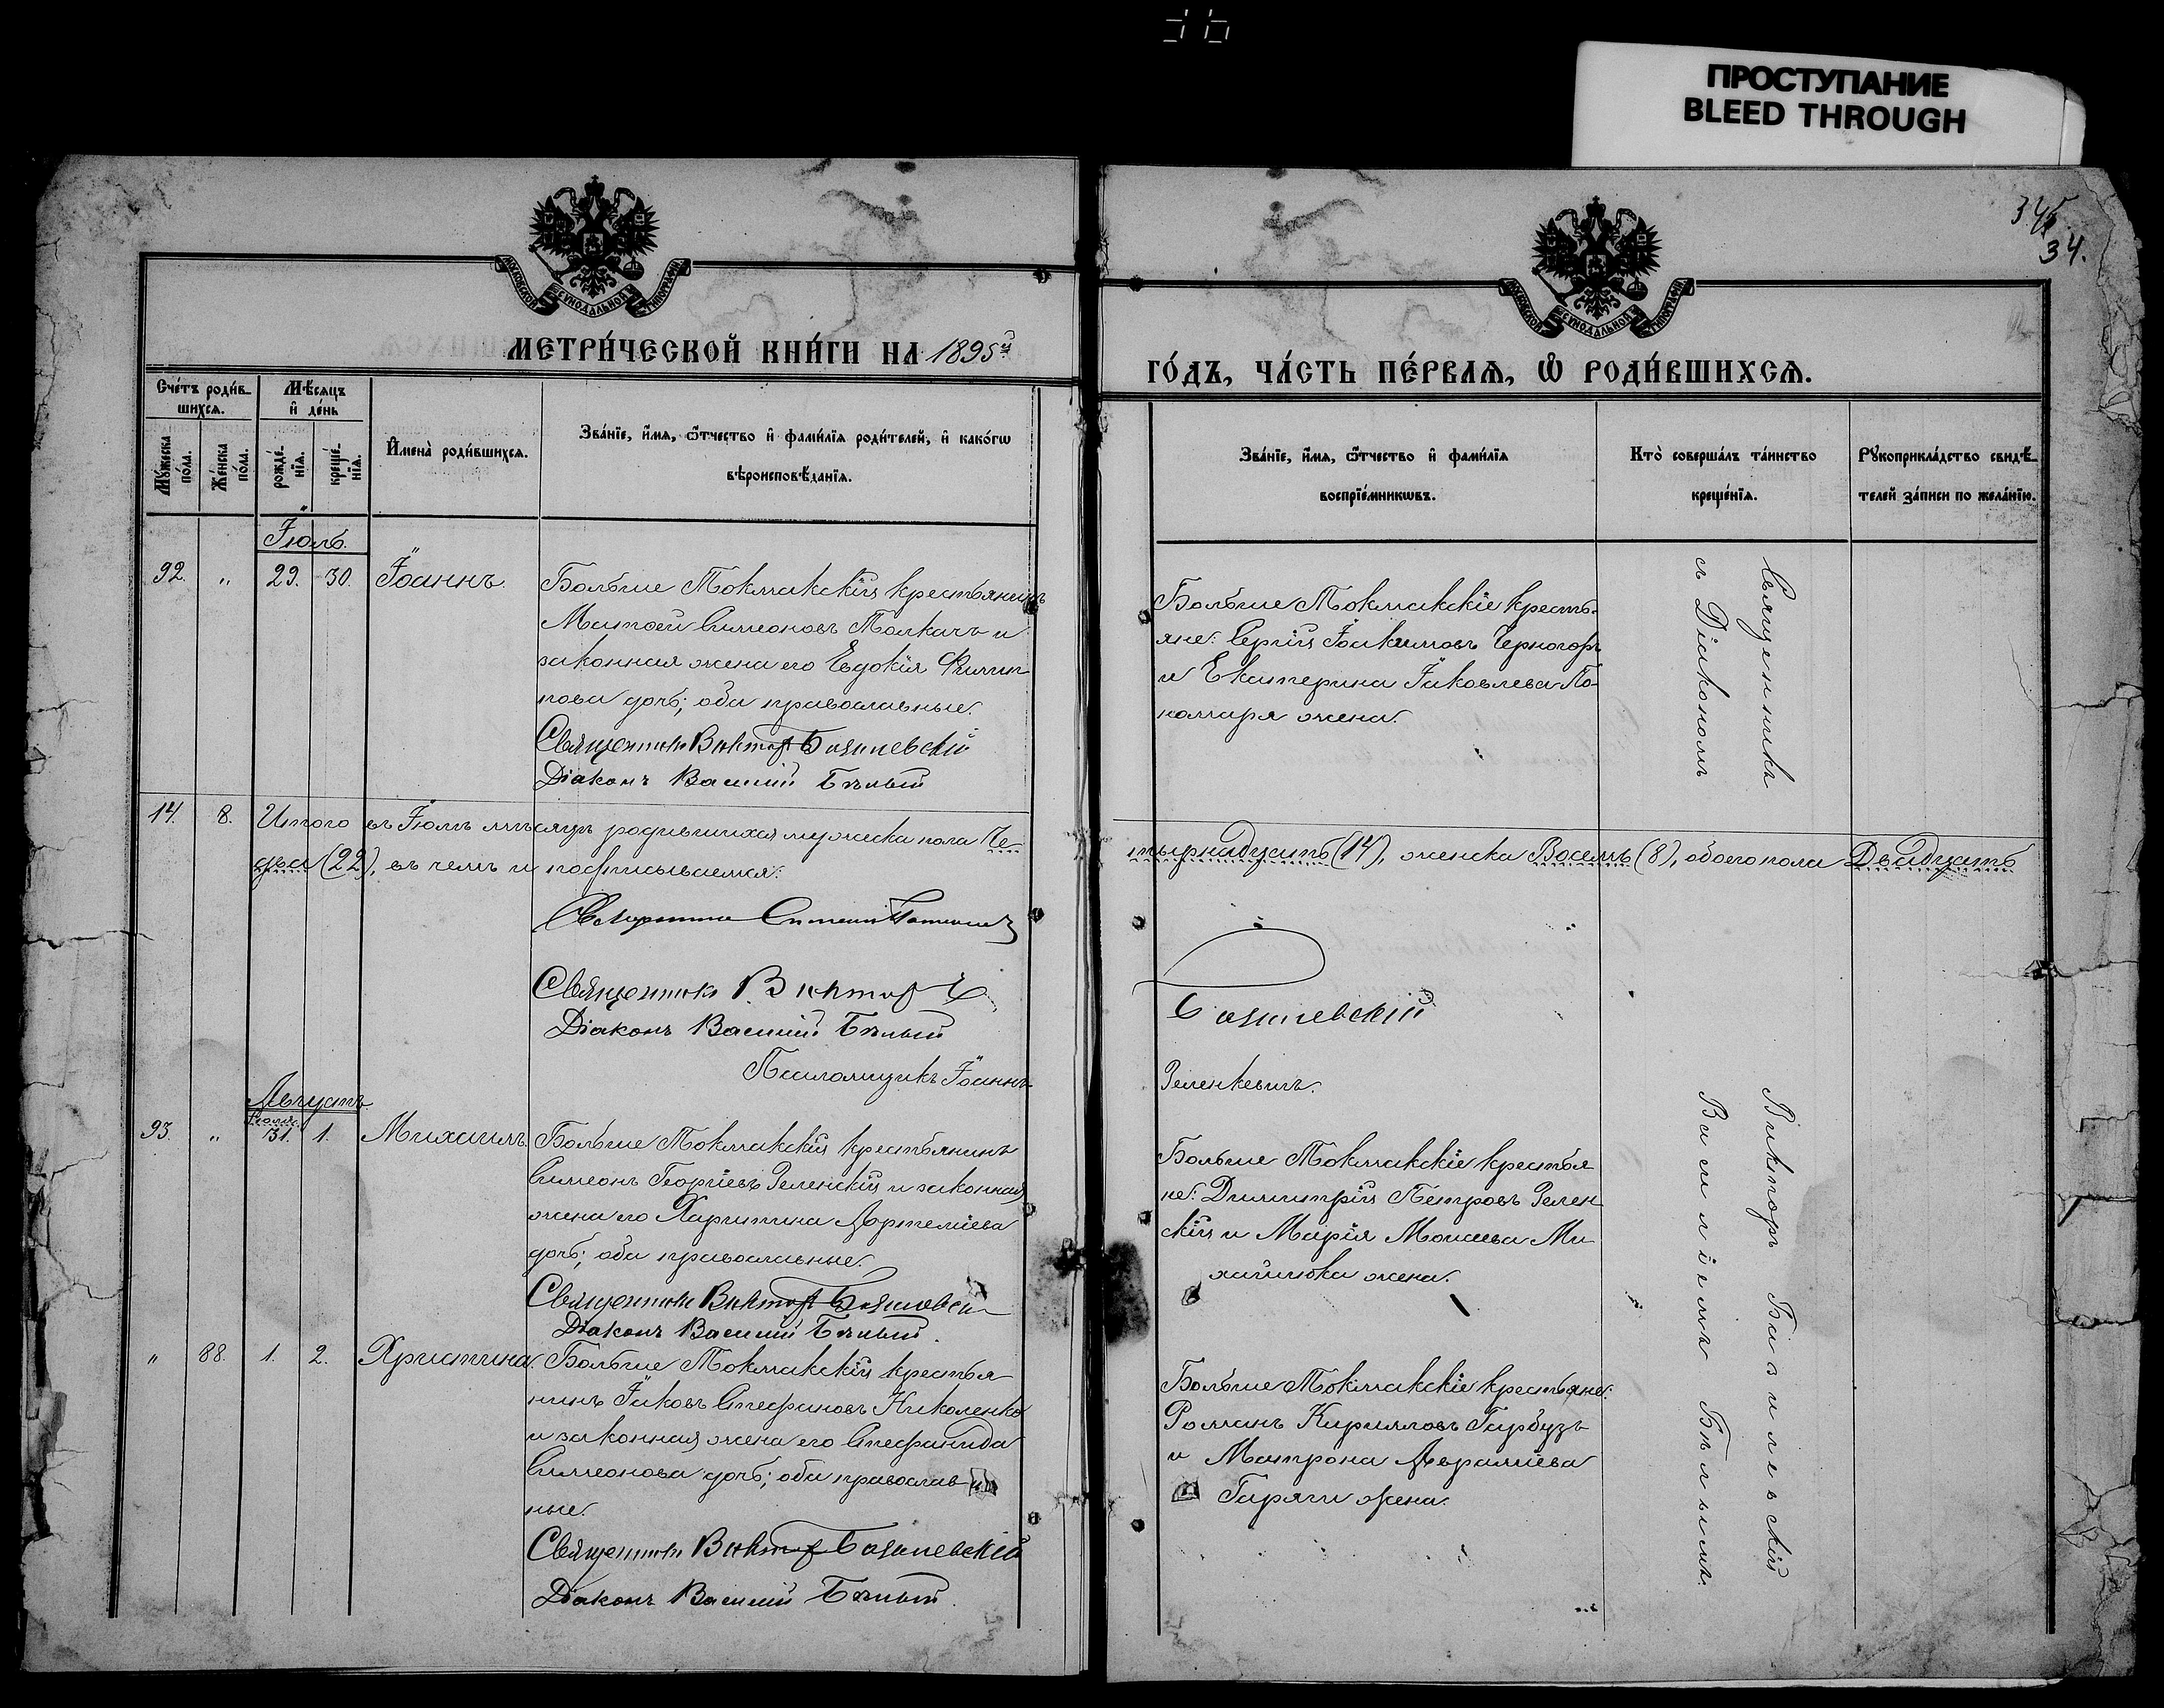 ПРОСТУПАНИЕ
BLEED THROUGH
34.
МОСКОВСКОЙ СѴНОДАЛЬНОЙ ТИПОГРАФІИ
МОСКОВСКОЙ СѴНОДАЛЬНОЙ ТИПОГРАФІИ
МЕТРИ́ЧЕСКОЙ КНИ́ГИ НА 1895й
ГО́ДЪ, ЧА́СТЬ ПЕ́РВАѦ, Ѡ҆ РОДИ́ВШИХСѦ.
Сче́тъ роди́в-
шихсѧ.
Мѣ́сѧцъ
и҆ де́нь
Мꙋ́жеска
по́ла.
Же́нска
по́ла.
рожде́-
нїѧ.
креще́-
нїѧ.
И҆мена̀ роди́вшихсѧ.
Зва́нїе, и҆́мѧ, ѻ҆́тчество и҆ фами́лїѧ роди́телей, и҆ како́гѡ
вѣроисповѣ́данїѧ.
Зва́нїе, и҆́мѧ, ѻ҆́тчество и҆ фами́лїѧ
воспрїе́мникѡвъ.
Кто̀ соверша́лъ та́инство
креще́нїѧ.
Рꙋкоприкла́дство свидѣ́-
телей за́писи по жела́нїю.
Іюль.
92. „ 29. 30. Іоаннъ
Больше Токмакскій крестьянинъ
Матѳей Симеоновъ Толкачъ и
законная жена его Евдокія Филип-
пова дочь; оба православные.
Священникъ Викторъ Базилевскій
Діаконъ Василій Бѣлый
Больше Токмакскіе кресть-
яне: Сергій Іоакимовъ Черногоръ
и Екатерина Іаковлева По-
номаря жена.
Священникъ
съ Діакономъ
14. 8. Итого въ Іюлѣ мѣсяцѣ родившихся мужеска пола Че-
тырнадцать (14), женска Восемь (8), обоего пола Двадцать
два (22), въ чемъ и подписываемся:
Священникъ Викторъ
Базилевскій
Діаконъ Василій Бѣлый
Псаломщикъ Іоаннъ
Зеленкевичъ.
Августъ
Іюля.
93. „ 31. 1. Михаилъ
Больше Токмакскій крестьянинъ
Симеонъ Георгіевъ Зеленскій и законная
жена его Харитина Артеміева
дочь; оба православные.
Священникъ Викторъ Базилевскій
Діаконъ Василій Бѣлый.
Больше Токмакскіе крестья
не: Димитрій Петровъ Зелен
скій и Марія Моисеева Ми
хайлюка жена.
Викторъ Базилевскій
Василіемъ Бѣлымъ.
„ 88. 1. 2. Христина.
Больше Токмакскій крестья
нинъ Іаковъ Стефановъ Николенко
и законная жена его Стефанида
Симеонова дочь; оба православ
ные.
Священникъ Викторъ Базилевскій
Діаконъ Василій Бѣлый.
Больше Токмакскіе крестьяне:
Романъ Кирилловъ Гарбузъ
и Матрона Авраміева
Гаряги жена.